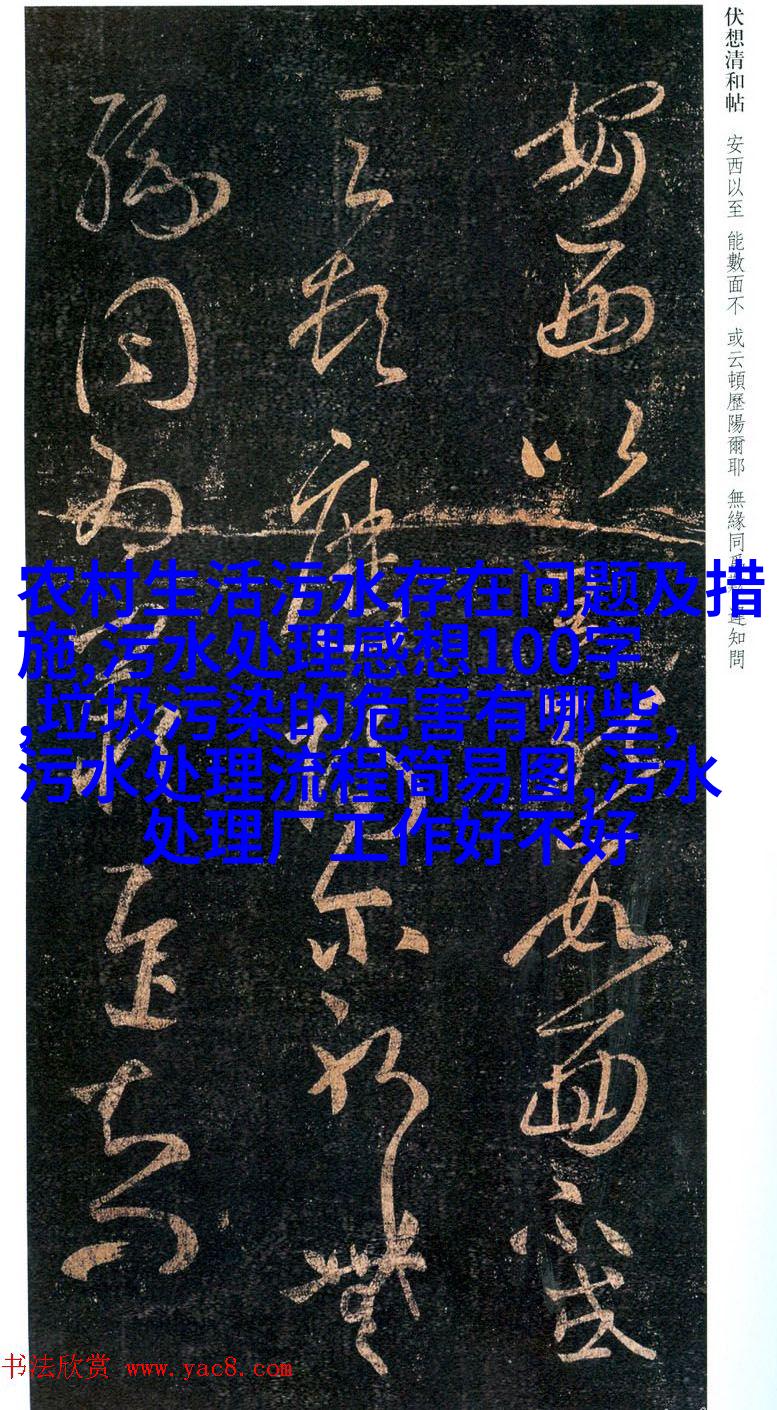 伏想清和帖 安西以至 能數面不 或云頓歷陽爾耶 無緣同爲 知問
安西以至能數面不或
云頓歷陽爾耶無
緣同爲 知問
农村生活污水存在问题及措
施,污水处理感想100字
,垃圾污染的危害有哪些,
污水处理流程简易图,污水
处理厂工作好不好
书法欣赏 www.yac8.com